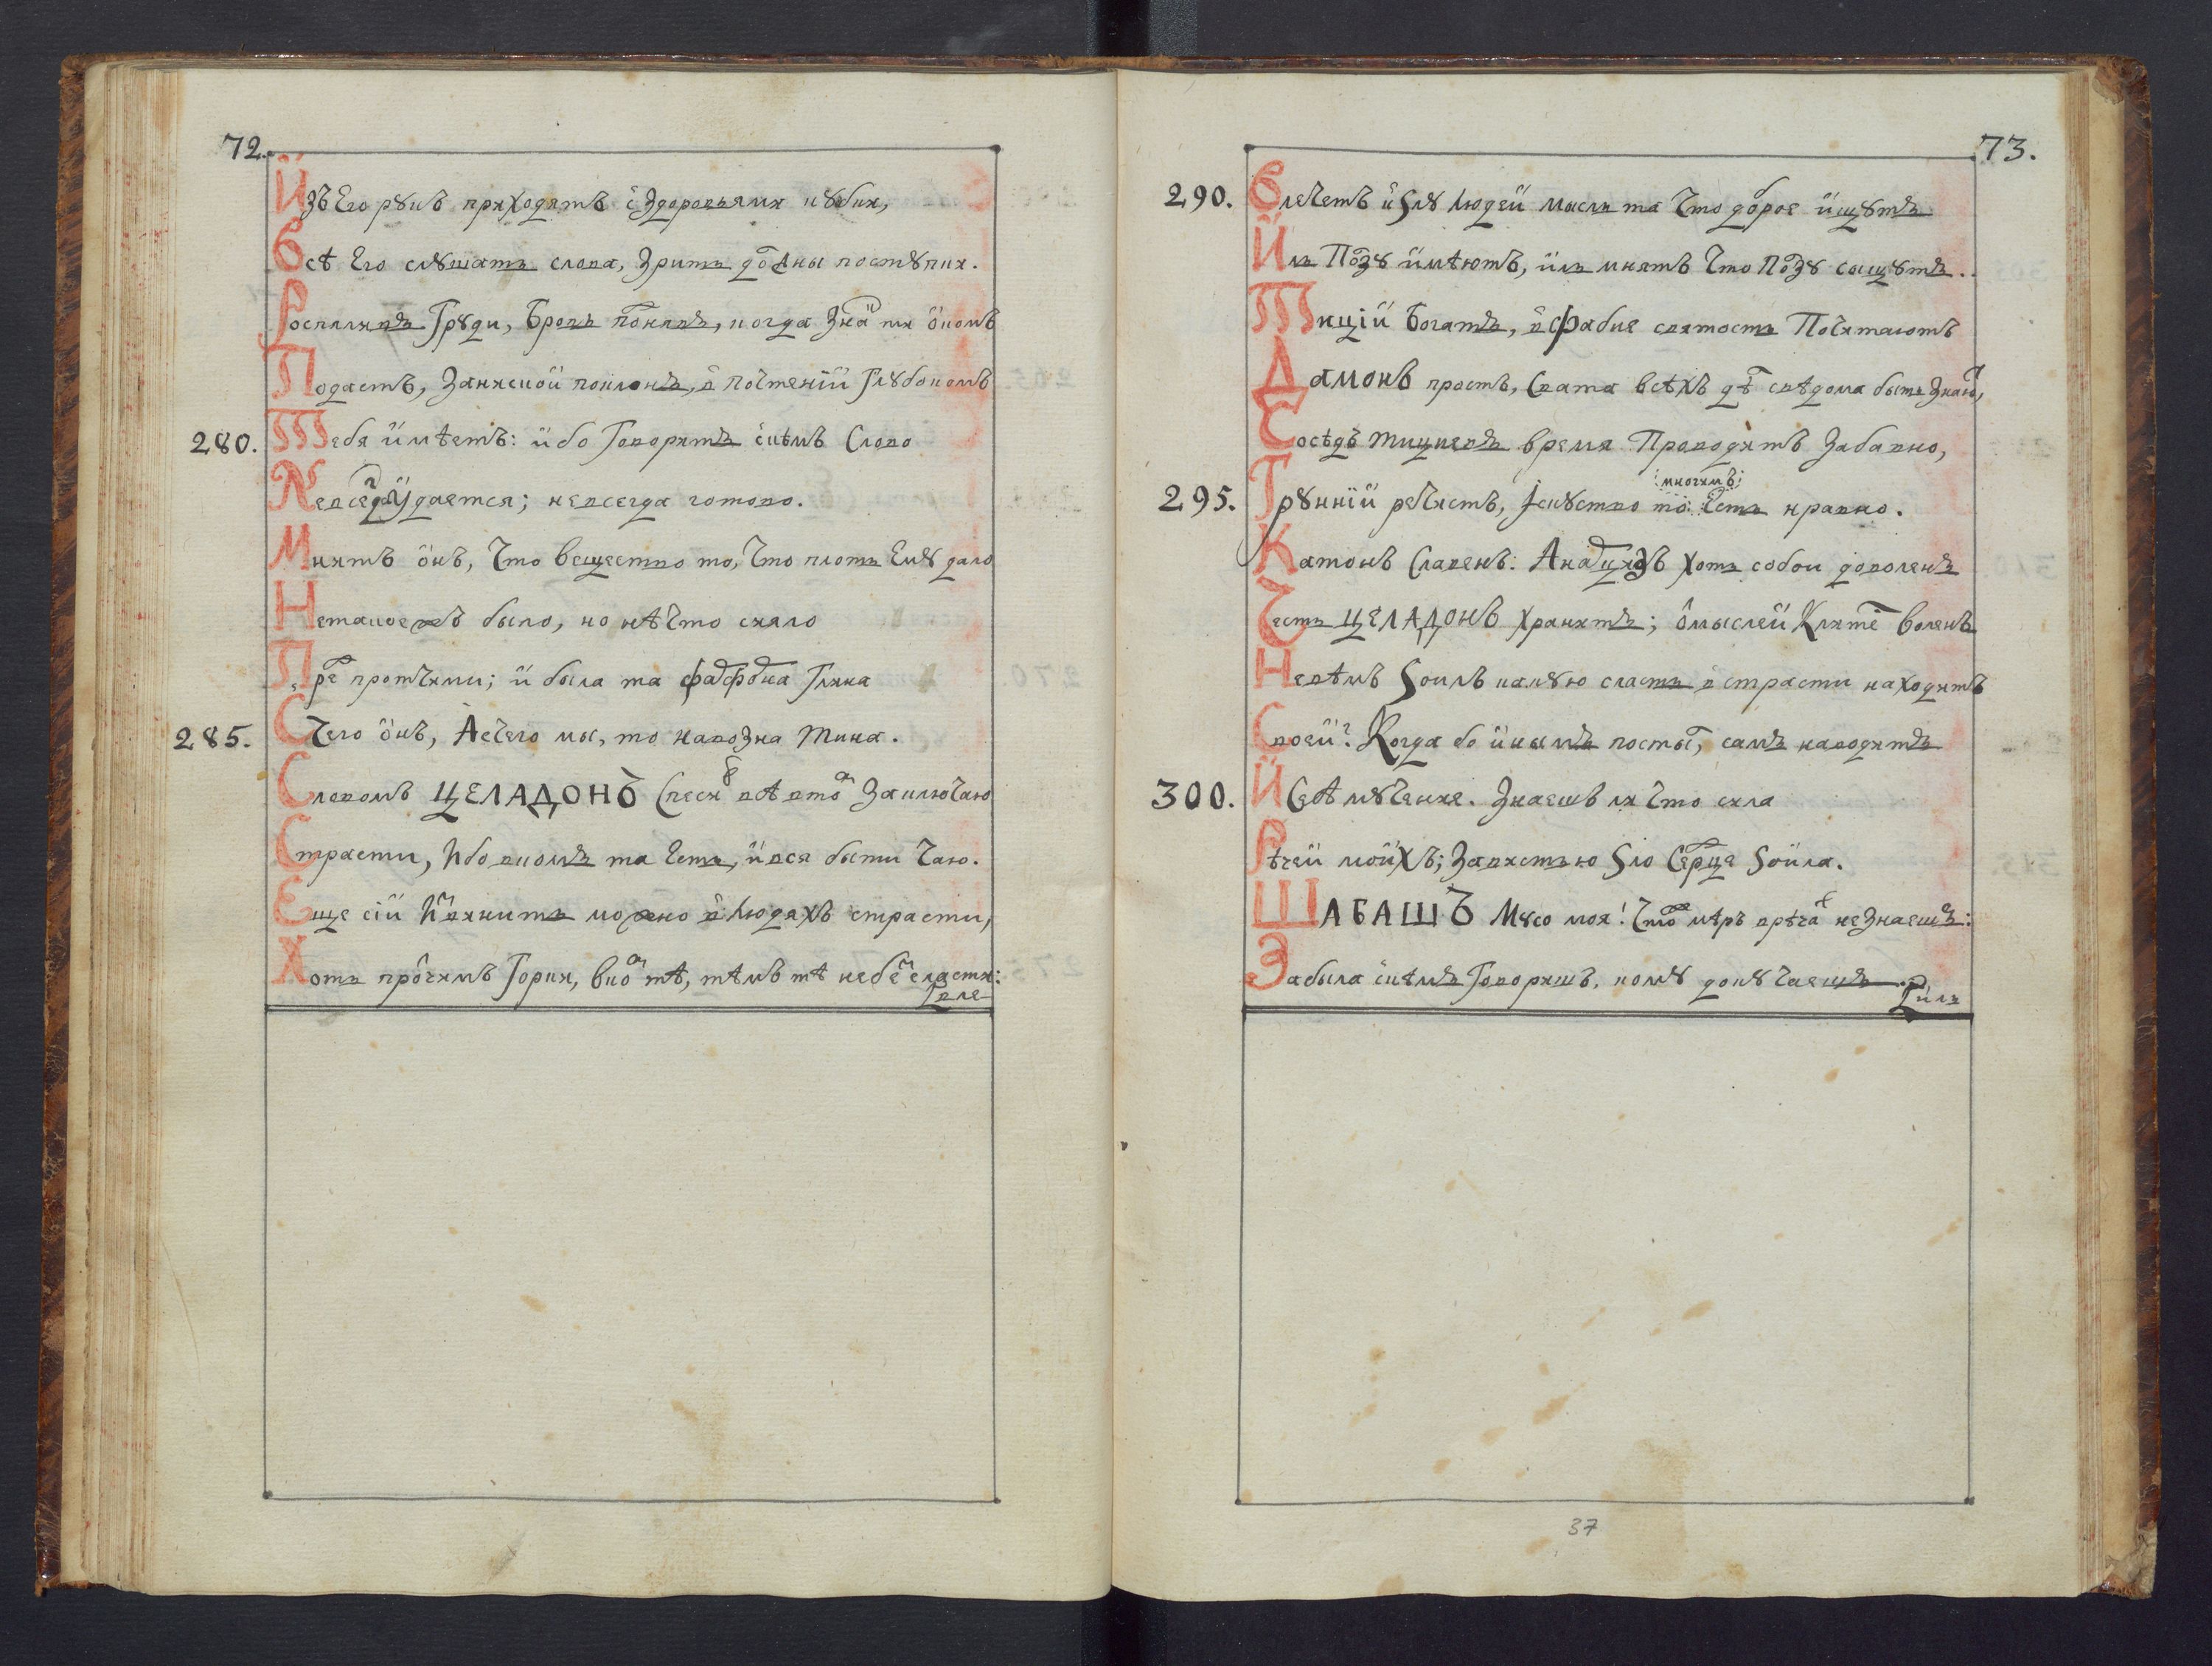 72.
Изъ Его рꙋкъ приходятъ с здоровьями кꙋбки,
Всѣ Его слꙋшатъ слова, Зрятъ дѡлны постꙋпки.
Роспяливъ Грꙋди, Бровь поднявъ, когда Знакъ ти ѻкомъ
Подастъ, Занизкой поклонъ, в почтенїи Глꙋбокомъ
280. Тебя имѣетъ: ибо Говоритъ с кѣмъ Слово
Невсегда Удается; невсегда готово.
Мнитъ онъ, Что вещество то, Что плоть Емꙋ дало
Нетакоежъ было, но нѣчто сияло
Пред протчими; и была та фарфорна Глина
285. С Чего онъ, А сЧего мы, то навозна Тина.
Словомъ ЦЕЛАДОНЪ Спеси всѣ втомъ Заключаю
Страсти, Ибо вкомъ та Есть, и вся быти Чаю.
Еще сїи Извинить можно в Людяхъ страсти,
Хоть протчимъ Горки, вком тѣ, тѣмъ тѣ небез сласти:
Вле
73.
290. Влечетъ и Ѕлꙋ Людей мысль та Что доброе ищꙋтъ
Иль Ползꙋ имѣютъ, иль мнятъ Что Ползꙋ сыщꙋтъ.
Тицїй Богатъ, в Фабие святость Почитаютъ
Дамонъ простъ, Свата всѣхъ дѣл свѣдома быть Знают,
Сосѣдъ Тицыевъ время Проводитъ Забавно,
295. Грꙋнкїй речистъ, Искꙋство то :многимъ: Есть нравно.
Катонъ Славенъ: Анадцизъ хоть собои доволенъ
Честь ЦЕЛАДОНЪ хранитъ; ѻмыслей Клитес воленъ
Невѣмъ Ѕоилъ какꙋю сласть в страсти находитъ
Своей? Когда бо инымъ постыл, самъ наводитъ
300. И Себѣ мꙋчение. Знаешъ ли Что сила
Рѣчей моихъ; Завистью Ѕло Сердце Ѕоила.
ШАБАШЪ Мꙋсо моя! Чтож мѣръ врѣчах незнаешъ:
Забыла с кѣмъ Говоришъ, комꙋ докꙋчаешъ.
Иль
37